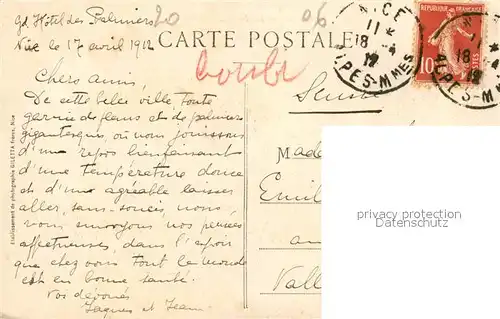 Gd Hôtel des Palmiers
Nice le 17 avril 1912
20
06
CARTE POSTALE
NICE
11 *
18 - 4
12
ALPES-M MES
10
11 *
18 - 4
12
ALPES-M MES
Chers amis,
De cette belle ville toute
garnie de fleurs et de palmiers
gigantesques, où nous jouissons
d'un repos bienfaisant
d'une température douce
et d'un agréable laisser
aller, sans-soucis, nous
vous envoyons nos pensées
affectueuses, dans l'espoir
que chez vous tout le monde
est en bonne santé.
Vos dévoués
Jaques et Jean
Suisse
Mada
Emil
Vall
Etablissement de photographie GILETTA frères, Nice
privacy protection
Datenschutz